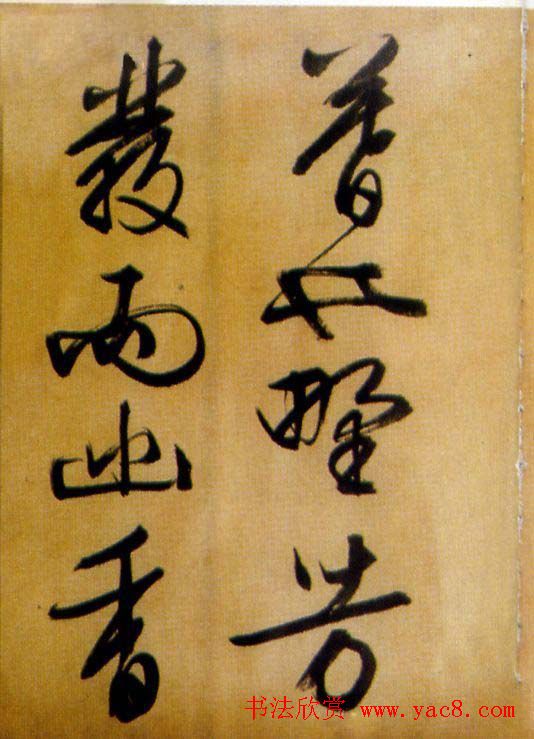 暮也野芳
發而幽香
书法欣赏 www.yac8.com